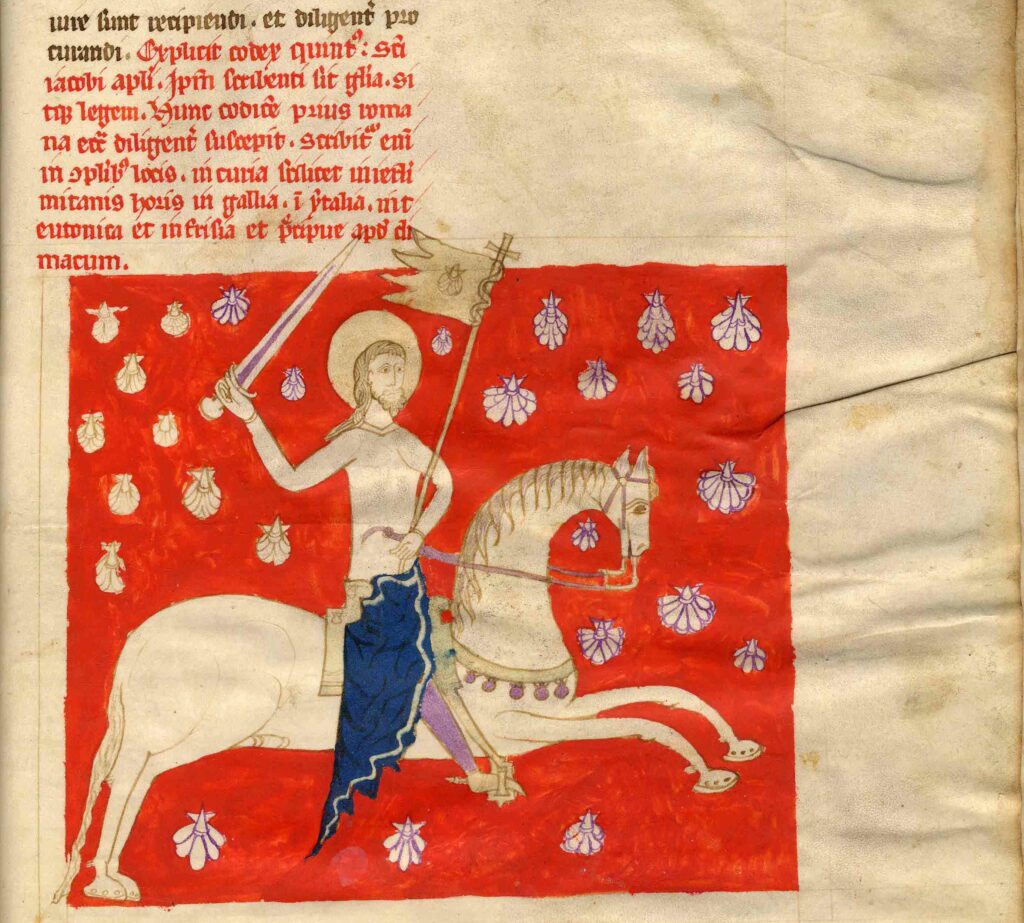 iure sunt recipiendi. et diligent̉ pro
curandi. Explicit codex quint᷒: sc̄i
iacobi apl̄i. Ip̄m scribenti sit gl̄ia. si
tq; legenti. Hunc codicē prius roma
na ecc̄ diligent̉ suscepit. scribit᷒ eni̅
in ꝯplib᷒ locis. in curia scilicet in iersl̄i
mitanis horis in gallia. ī ẏtalia. in t
eutonica et in frisia et p̄cipue apd̄ clu
niacum.